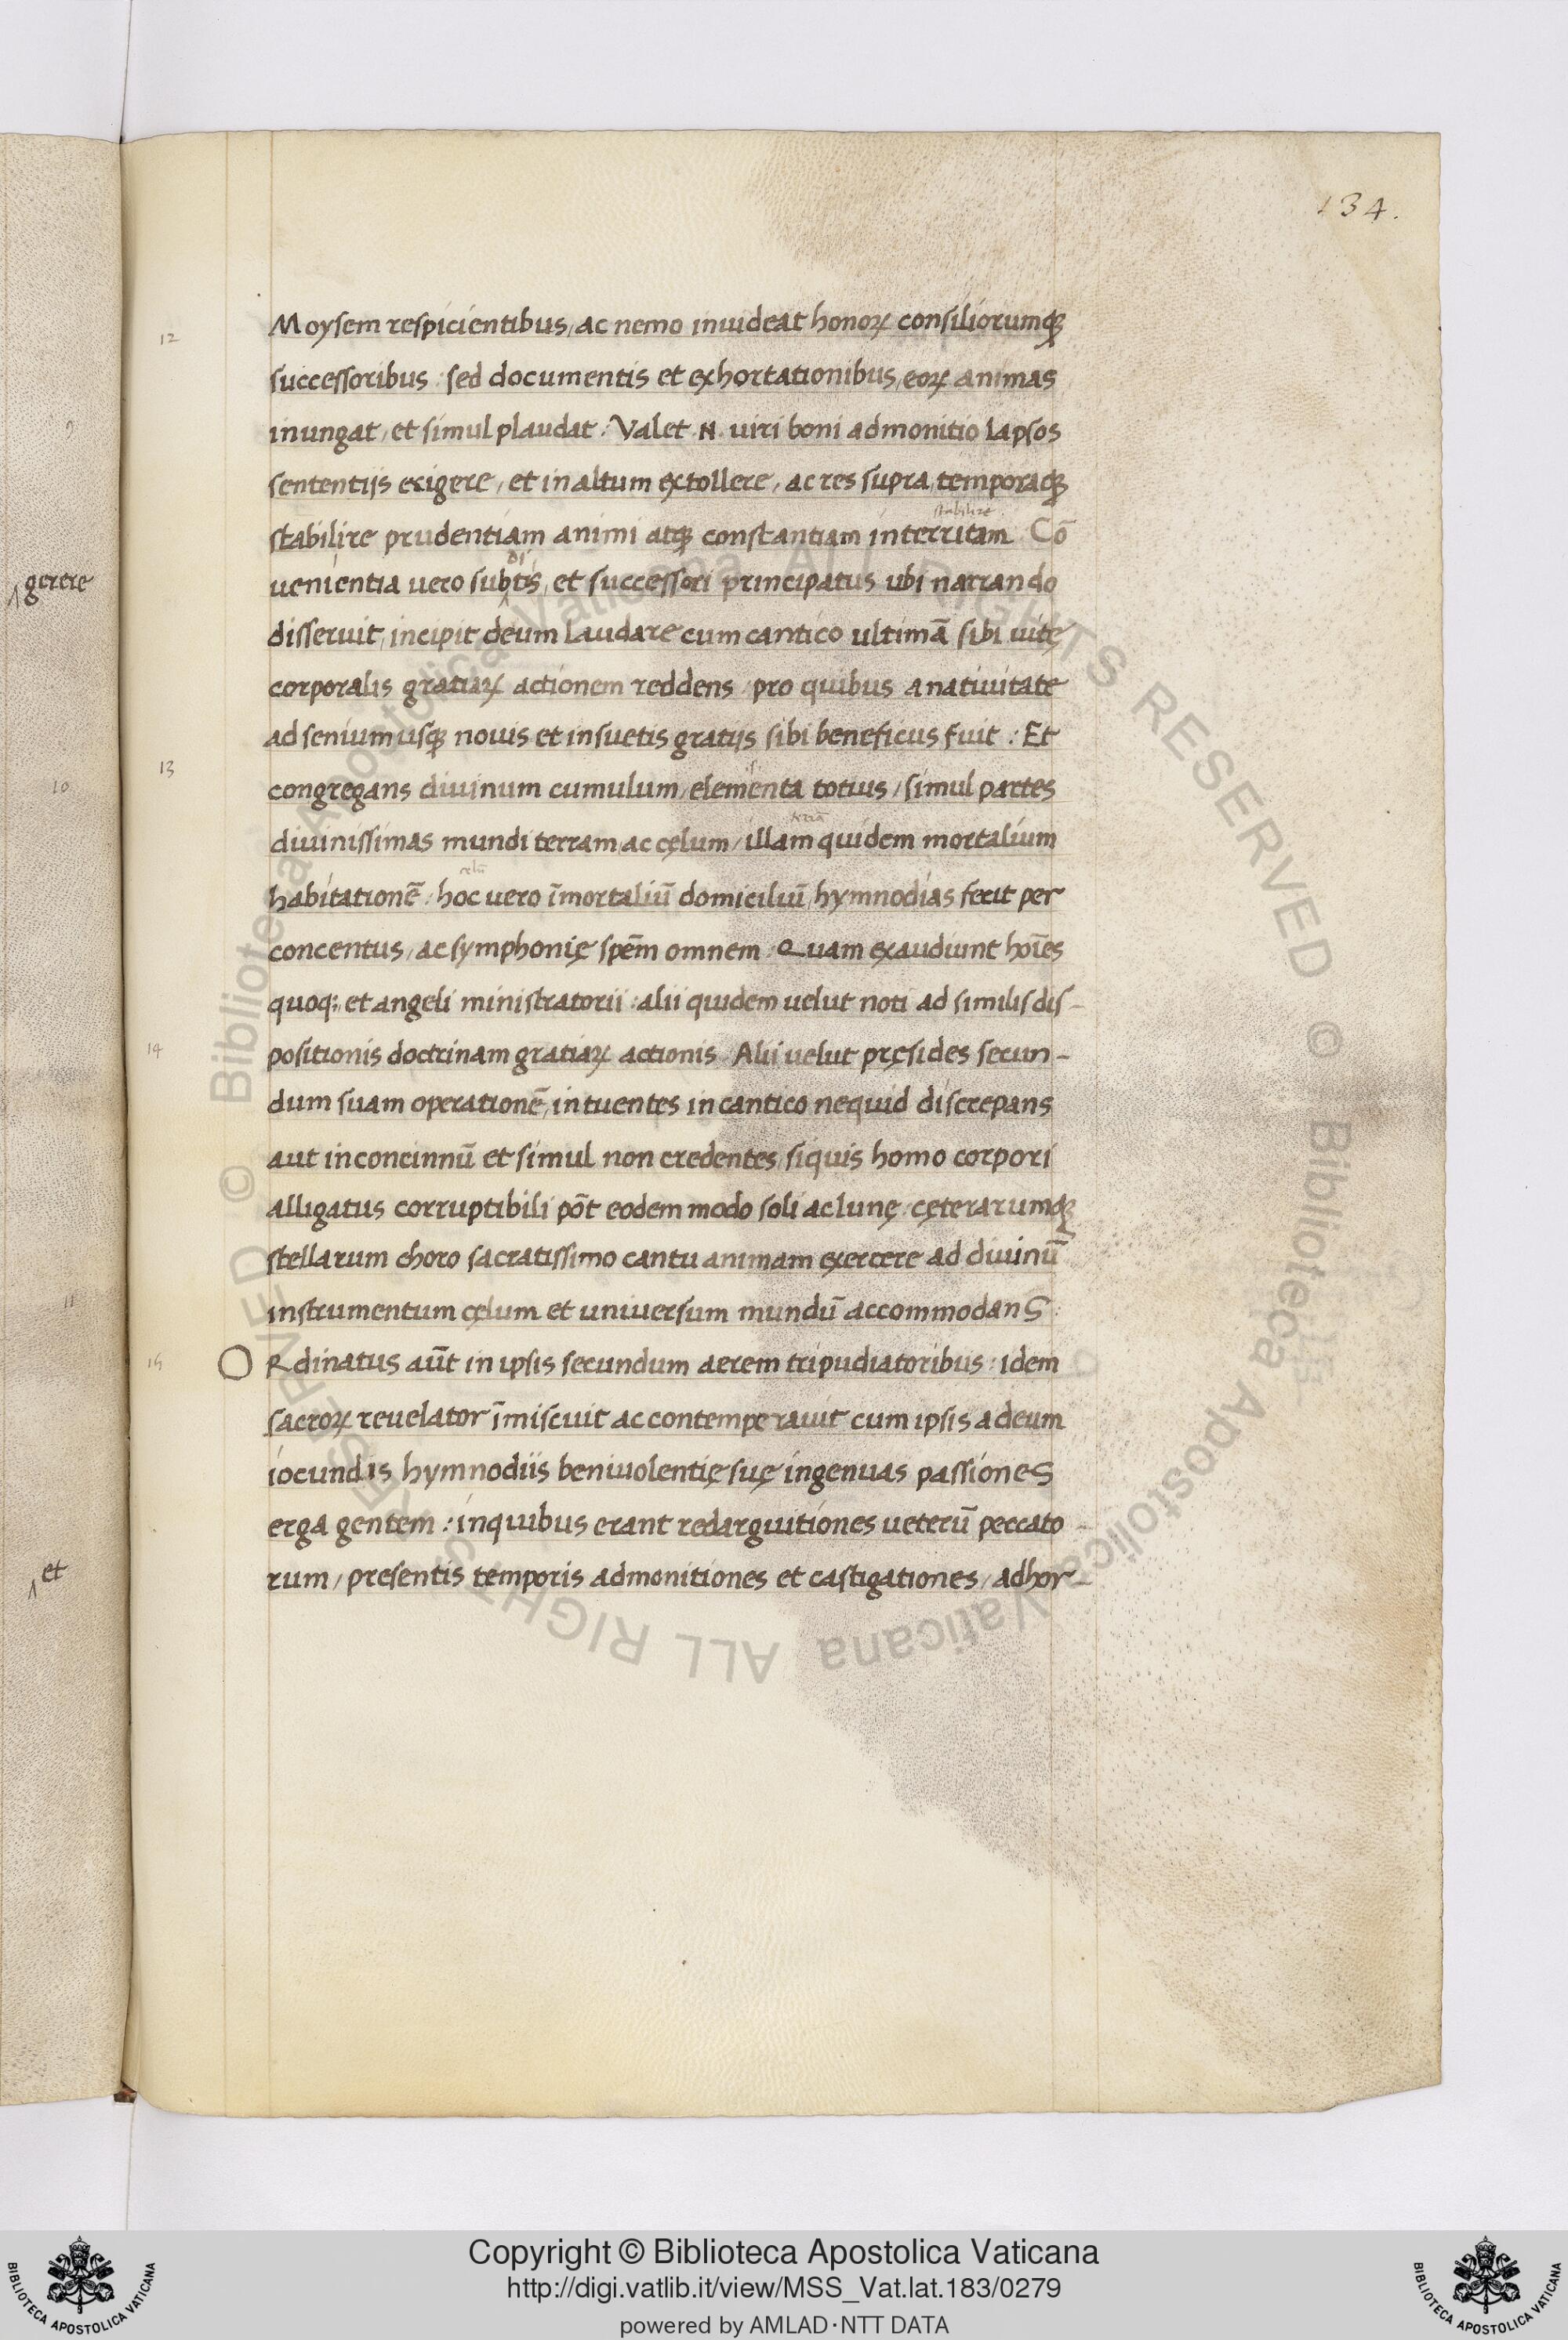 134.
Moysem respicientibus, ac nemo inuideat honoꝝ consiliorumqꝫ
successoribus: sed documentis et exhortationibus, eoꝝ animas
inungat, et simul plaudat. Valet .N. uiri boni admonitio lapsos
sententijs erigere, et in altum extollere, ac res supra, temporaqꝫ
stabilire
stabilire prudentiam animi atqꝫ constantiam interritam. Cō
di
uenientia uero subtis, et successori principatus ubi narrando
disseruit, incipit deum laudare cum cantico ultimā sibi uitę
corporalis gratiaꝝ actionem reddens, pro quibus a natiuitate
ad senium usqꝫ nouis et insuetis gratijs sibi beneficus fuit: Et
congregans diuinum cumulum, elementa totius, simul partes
diuinissimas mundi terram ac cęlum, illam quidem mortalium
habitationē: hoc uero īmortaliū domiciliū, hymnodias fecit per
concentus, ac symphonię spēm omnem: Quam exaudiunt hoīes
quoqꝫ, et angeli ministratorii: alii quidem uelut noti ad similis dis-
positionis doctrinam gratiaꝝ actionis. Alii uelut pręsides secun-
dum suam operationē, intuentes in cantico nequid discrepans
aut inconcinnū et simul non credentes, siquis homo corpori
alligatus corruptibili pōt eodem modo soli ac lunę, cęterarumqꝫ
stellarum choro sacratissimo cantu animam exercere ad diuinū
instrumentum cęlum et uniuersum mundū accommodans:
ORdinatus aūt in ipsis secundum aerem tripudiatoribus: idem
sacroꝝ reuelator īmiscuit ac contemperauit cum ipsis adeum
iocundis hymnodiis beniuolentię suę ingenuas passiones
erga gentem: in quibus erant redarguitiones ueterū peccato-
rum, presentis temporis admonitiones et castigationes, adhor-
12
13
14
15
gerere
9
10
11
et
© Biblioteca Apostolica Vaticana ALL RIGHTS RESERVED
Copyright © Biblioteca Apostolica Vaticana
http://digi.vatlib.it/view/MSS_Vat.lat.183/0279
powered by AMLAD·NTT DATA
BIBLIOTECA APOSTOLICA VATICANA
BIBLIOTECA APOSTOLICA VATICANA